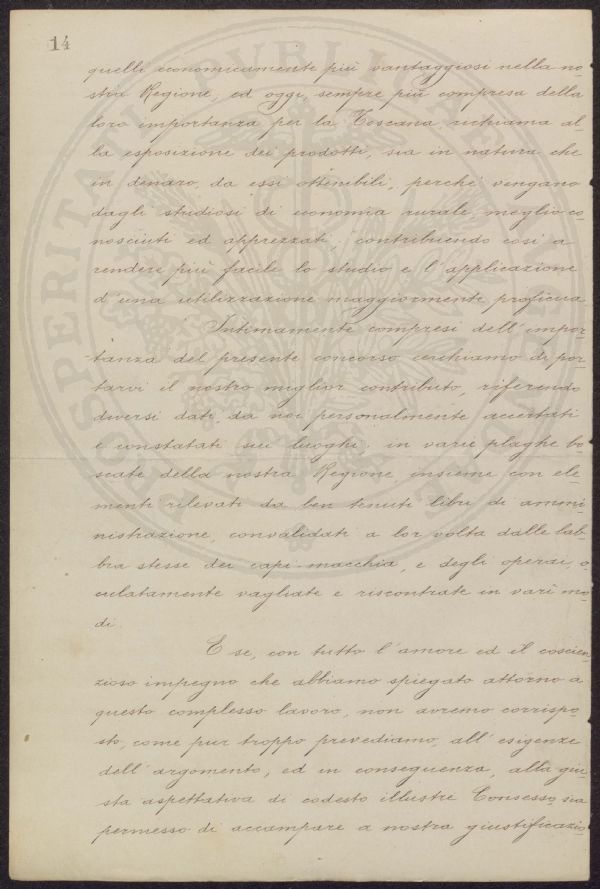 14
quelli economicamente più vantaggiosi nella no-
stra Regione, ed oggi, sempre più compresa della
loro importanza per la Toscana, richiama al-
la esposizione dei prodotti, sia in natura che
in denaro, da essi ottenibili, perché vengano
dagli studiosi di economia rurale, meglio co-
nosciuti ed apprezzati, contribuendo così a
rendere più facile lo studio e l'applicazione
d'una utilizzazione maggiormente proficua.
Intimamente compresi dell'impor-
tanza del presente concorso cerchiamo di por-
tarvi il nostro miglior contributo, riferendo
diversi dati, da noi personalmente accertati
e constatati sui luoghi, in varie plaghe bo-
scate della nostra Regione, insieme con ele-
menti rilevati da ben tenuti libri di ammi-
nistrazione, convalidati a lor volta dalle lab-
bra stesse dei capi-macchia, e degli operai, o-
culatamente vagliate e riscontrate in vari mo-
di.
E se, con tutto l'amore ed il coscien-
zioso impegno che abbiamo spiegato attorno a
questo complesso lavoro, non avremo corrispo-
sto, come pur troppo prevediamo, all'esigenze
dell'argomento, ed in conseguenza, alla giu-
sta aspettativa di codesto illustre Consesso, sia
permesso di accampare a nostra giustificazio-